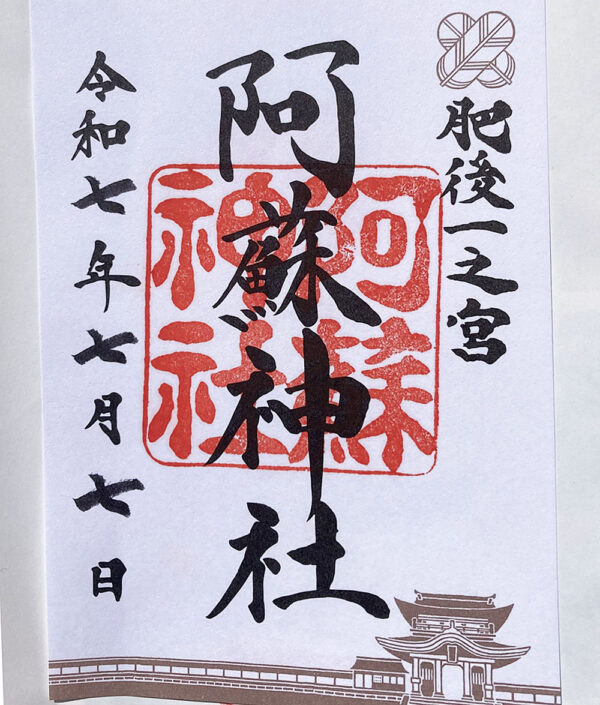 肥後一之宮
阿蘇神社
阿蘇神社
令和七年七月七日